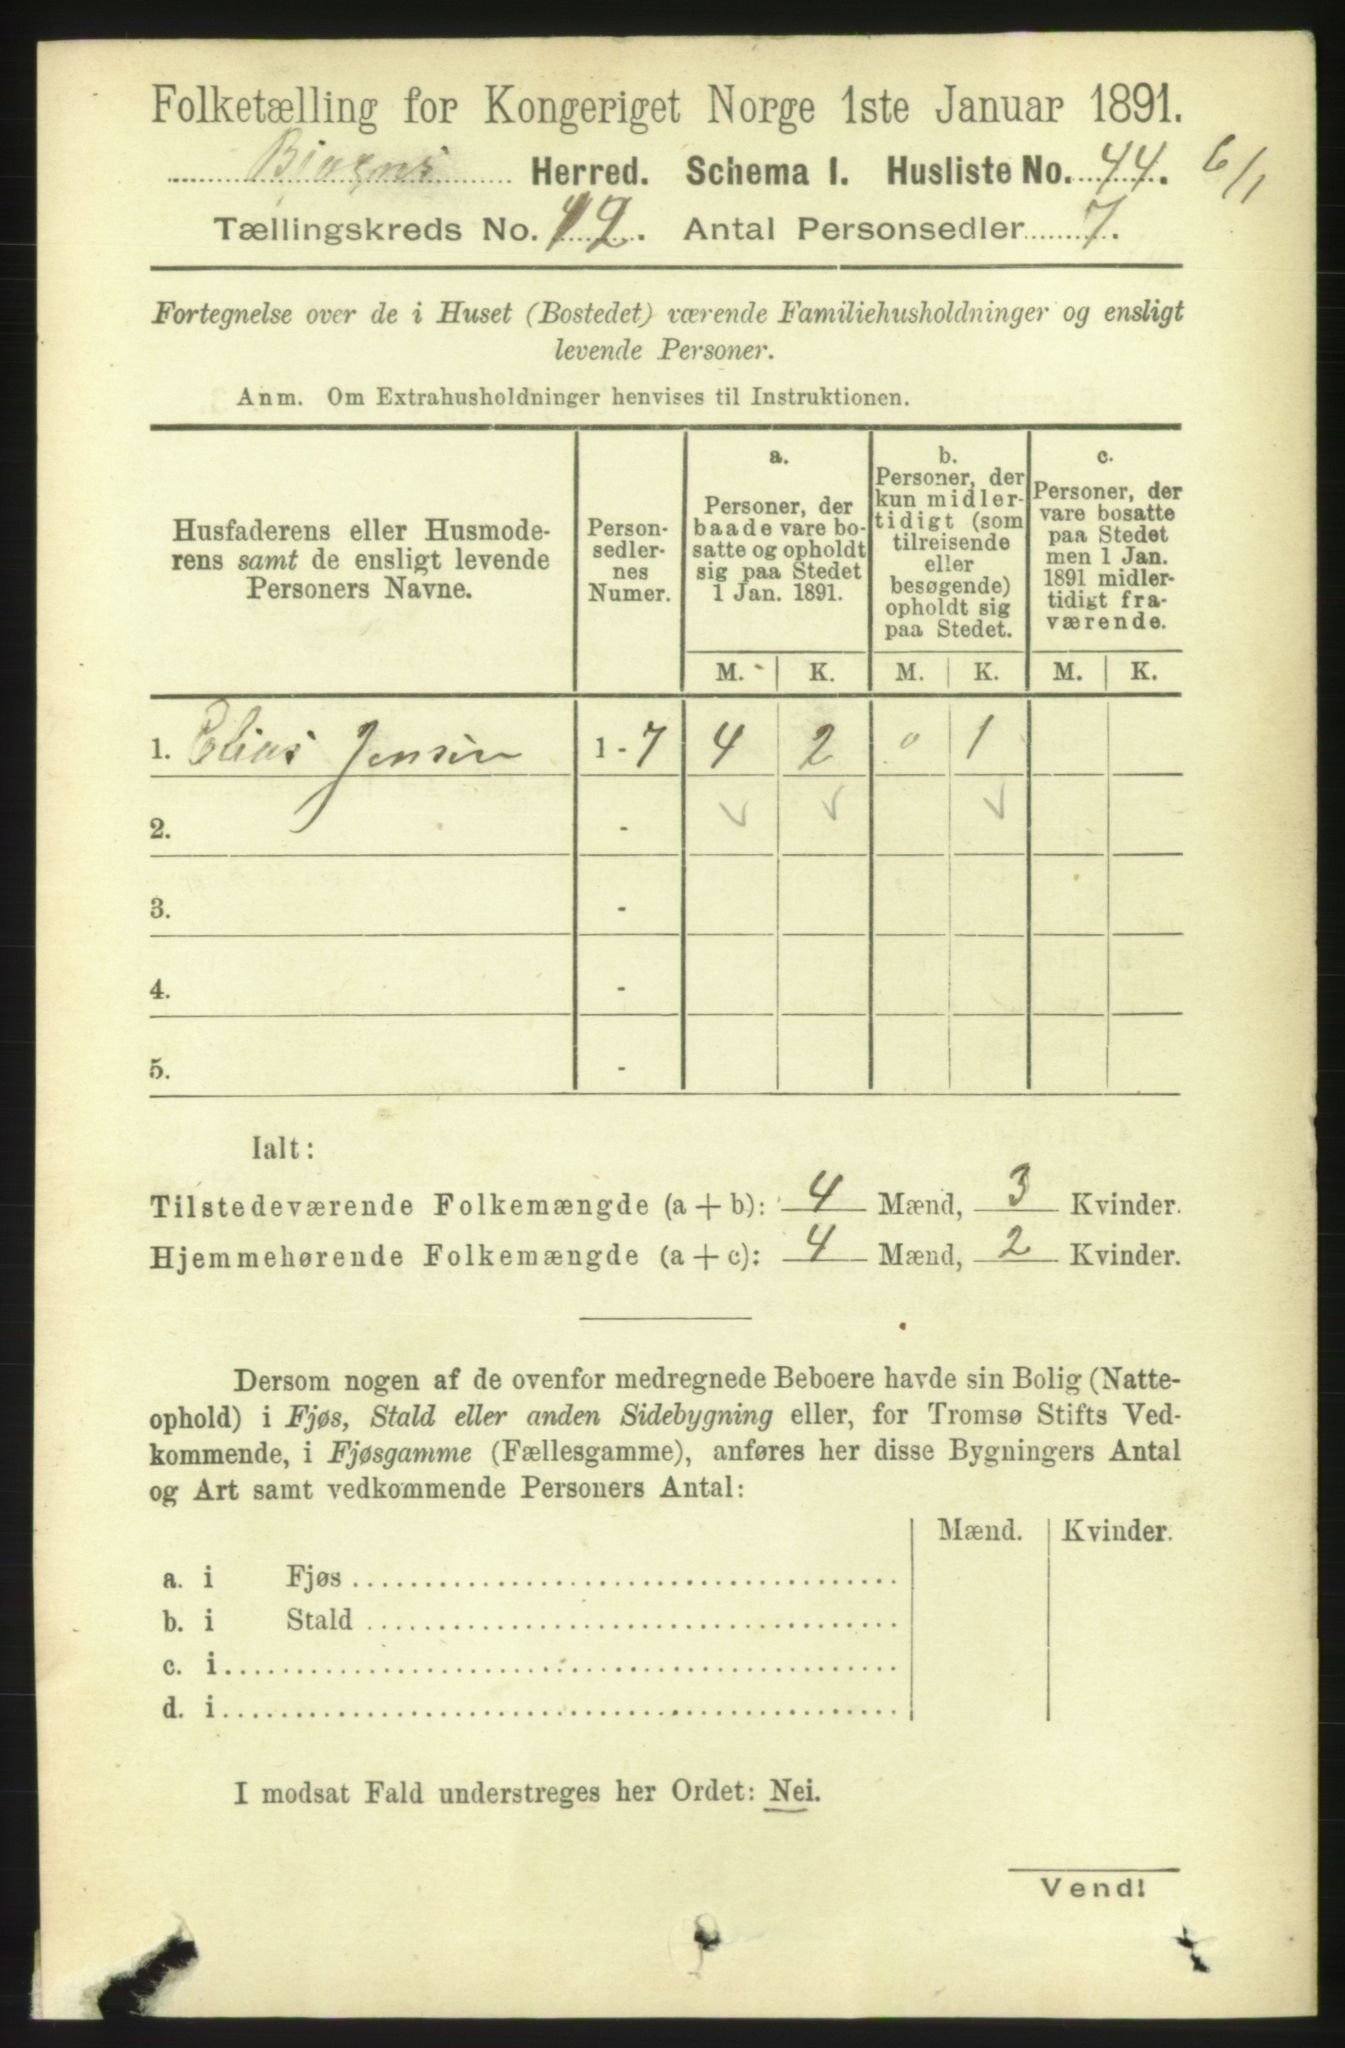 Folketælling for Kongeriget Norge 1ste Januar 1891.
Herred. Schema 1. Husliste No. 44. 6/1
Tællingskreds No. 12. Antal Personsedler 7.
Fortegnelse over de i Huset (Bostedet) værende Familiehusholdninger og ensligt
levende Personer.
Anm. Om Extrahusholdninger henvises til Instruktionen.
Husfaderens eller Husmode-
rens samt de ensligt levende
Personers Navne.
Person-
sedler-
nes
Numer.
a.
Personer, der
baade vare bo-
satte og opholdt
sig paa Stedet
1 Jan. 1891.
b.
Personer, der
kun midler-
tidigt (som
tilreisende
eller
besøgende)
opholdt sig
paa Stedet.
c.
Personer, der
vare bosatte
paa Stedet
men 1 Jan.
1891 midler-
tidigt fra-
værende.
M. K. M. K. M. K.
1. Elias Jensen 1 - 7 4 2 0 1
2. -
3. -
4. -
5. -
Ialt:
Tilstedeværende Folkemængde (a + b): 4 Mænd, 3 Kvinder.
Hjemmehørende Folkemængde (a + c): 4 Mænd, 2 Kvinder.
Dersom nogen af de ovenfor medregnede Beboere havde sin Bolig (Natte-
ophold) i Fjøs, Stald eller anden Sidebygning eller, for Tromsø Stifts Ved-
kommende, i Fjøsgamme (Fællesgamme), anføres her disse Bygningers Antal
og Art samt vedkommende Personers Antal:
Mænd. Kvinder.
a. i Fjøs
b. i Stald
c. i
d. i
I modsat Fald understreges her Ordet: Nei.
Vend!